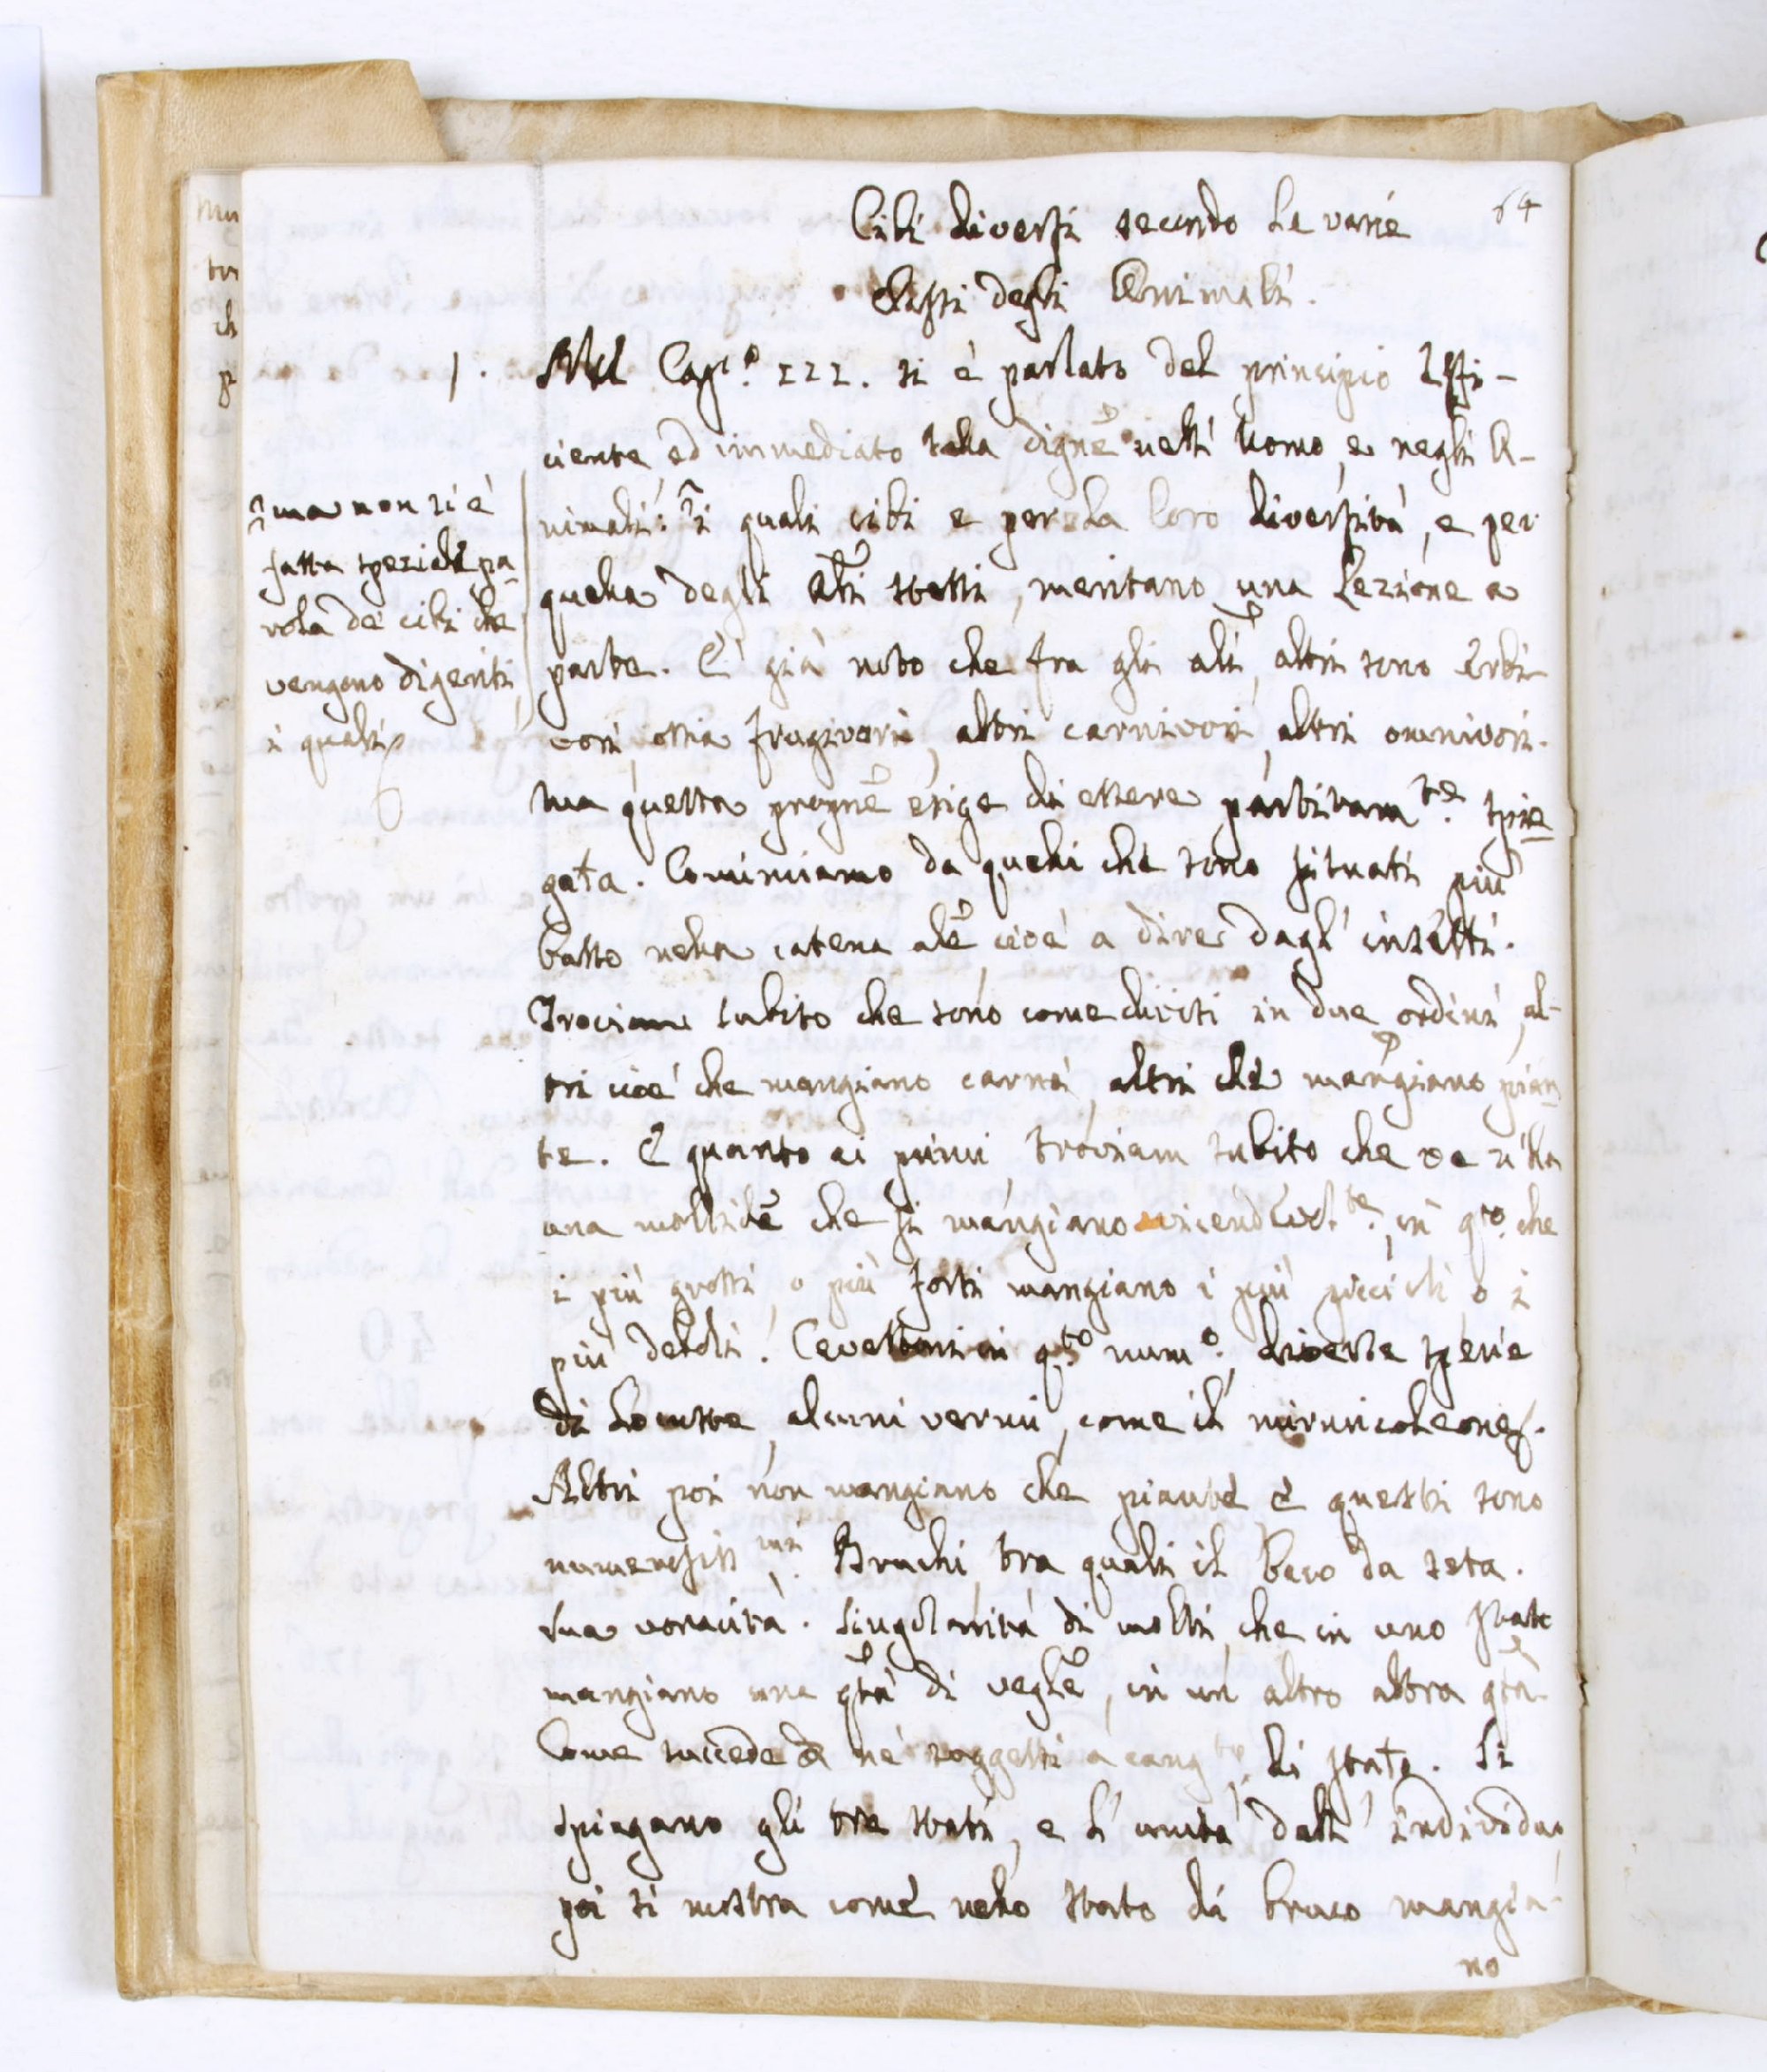 64
Cibi diversi secondo le varie
Classi degli Animali.
1. Nel Capo. III. si è parlato del principio Effi-
ciente, ed immediato della digne nell' Uomo, e negli A-
nimali: i quali cibi e per la loro diversità, e per
quella degli ali stessi, meritano una Lezione a
parte. È già noto che fra gli ali, altri sono Erbi-
vori, ossia frugivori, altri carnivori, altri omnivori.
Ma questa propne esige di essere partitamte. spie
gata. Cominciamo da quelli che sono situati più
basso nella catena ale, cioè a dire dagl' insetti.
Troviam subito che sono come divisi in due ordini, al-
tri cioè che mangiano carne, altri che mangiano pian
te. E quanto ai primi troviam subito che ve n' ha
una moltidne che si mangiano vicendevolte. in qto. che
i più grossi, o più forti mangiano i più piccioli o i
più deboli. Cevettonsi in qto numo. diverse specie
di Locuste, alcuni vermi, come il mirmicoleone.
Altri poi non mangiano che piante e questi sono
numerosissmi. Bruchi, tra quali il baco da seta.
Sua voracità. Singolarità di molti, che in uno stato
mangiano una qtà di vegle, in un altro altra qtà.
Come succede ne' soggetti a cangte. di stato. Si
spiegano gli tre stati, e l' unità dell' individuo
poi si mostra come nello stato di bruco mangia-
no
ma non si è
fatta speziale pa-
rola de' cibi che
vengono digeriti,
i quali